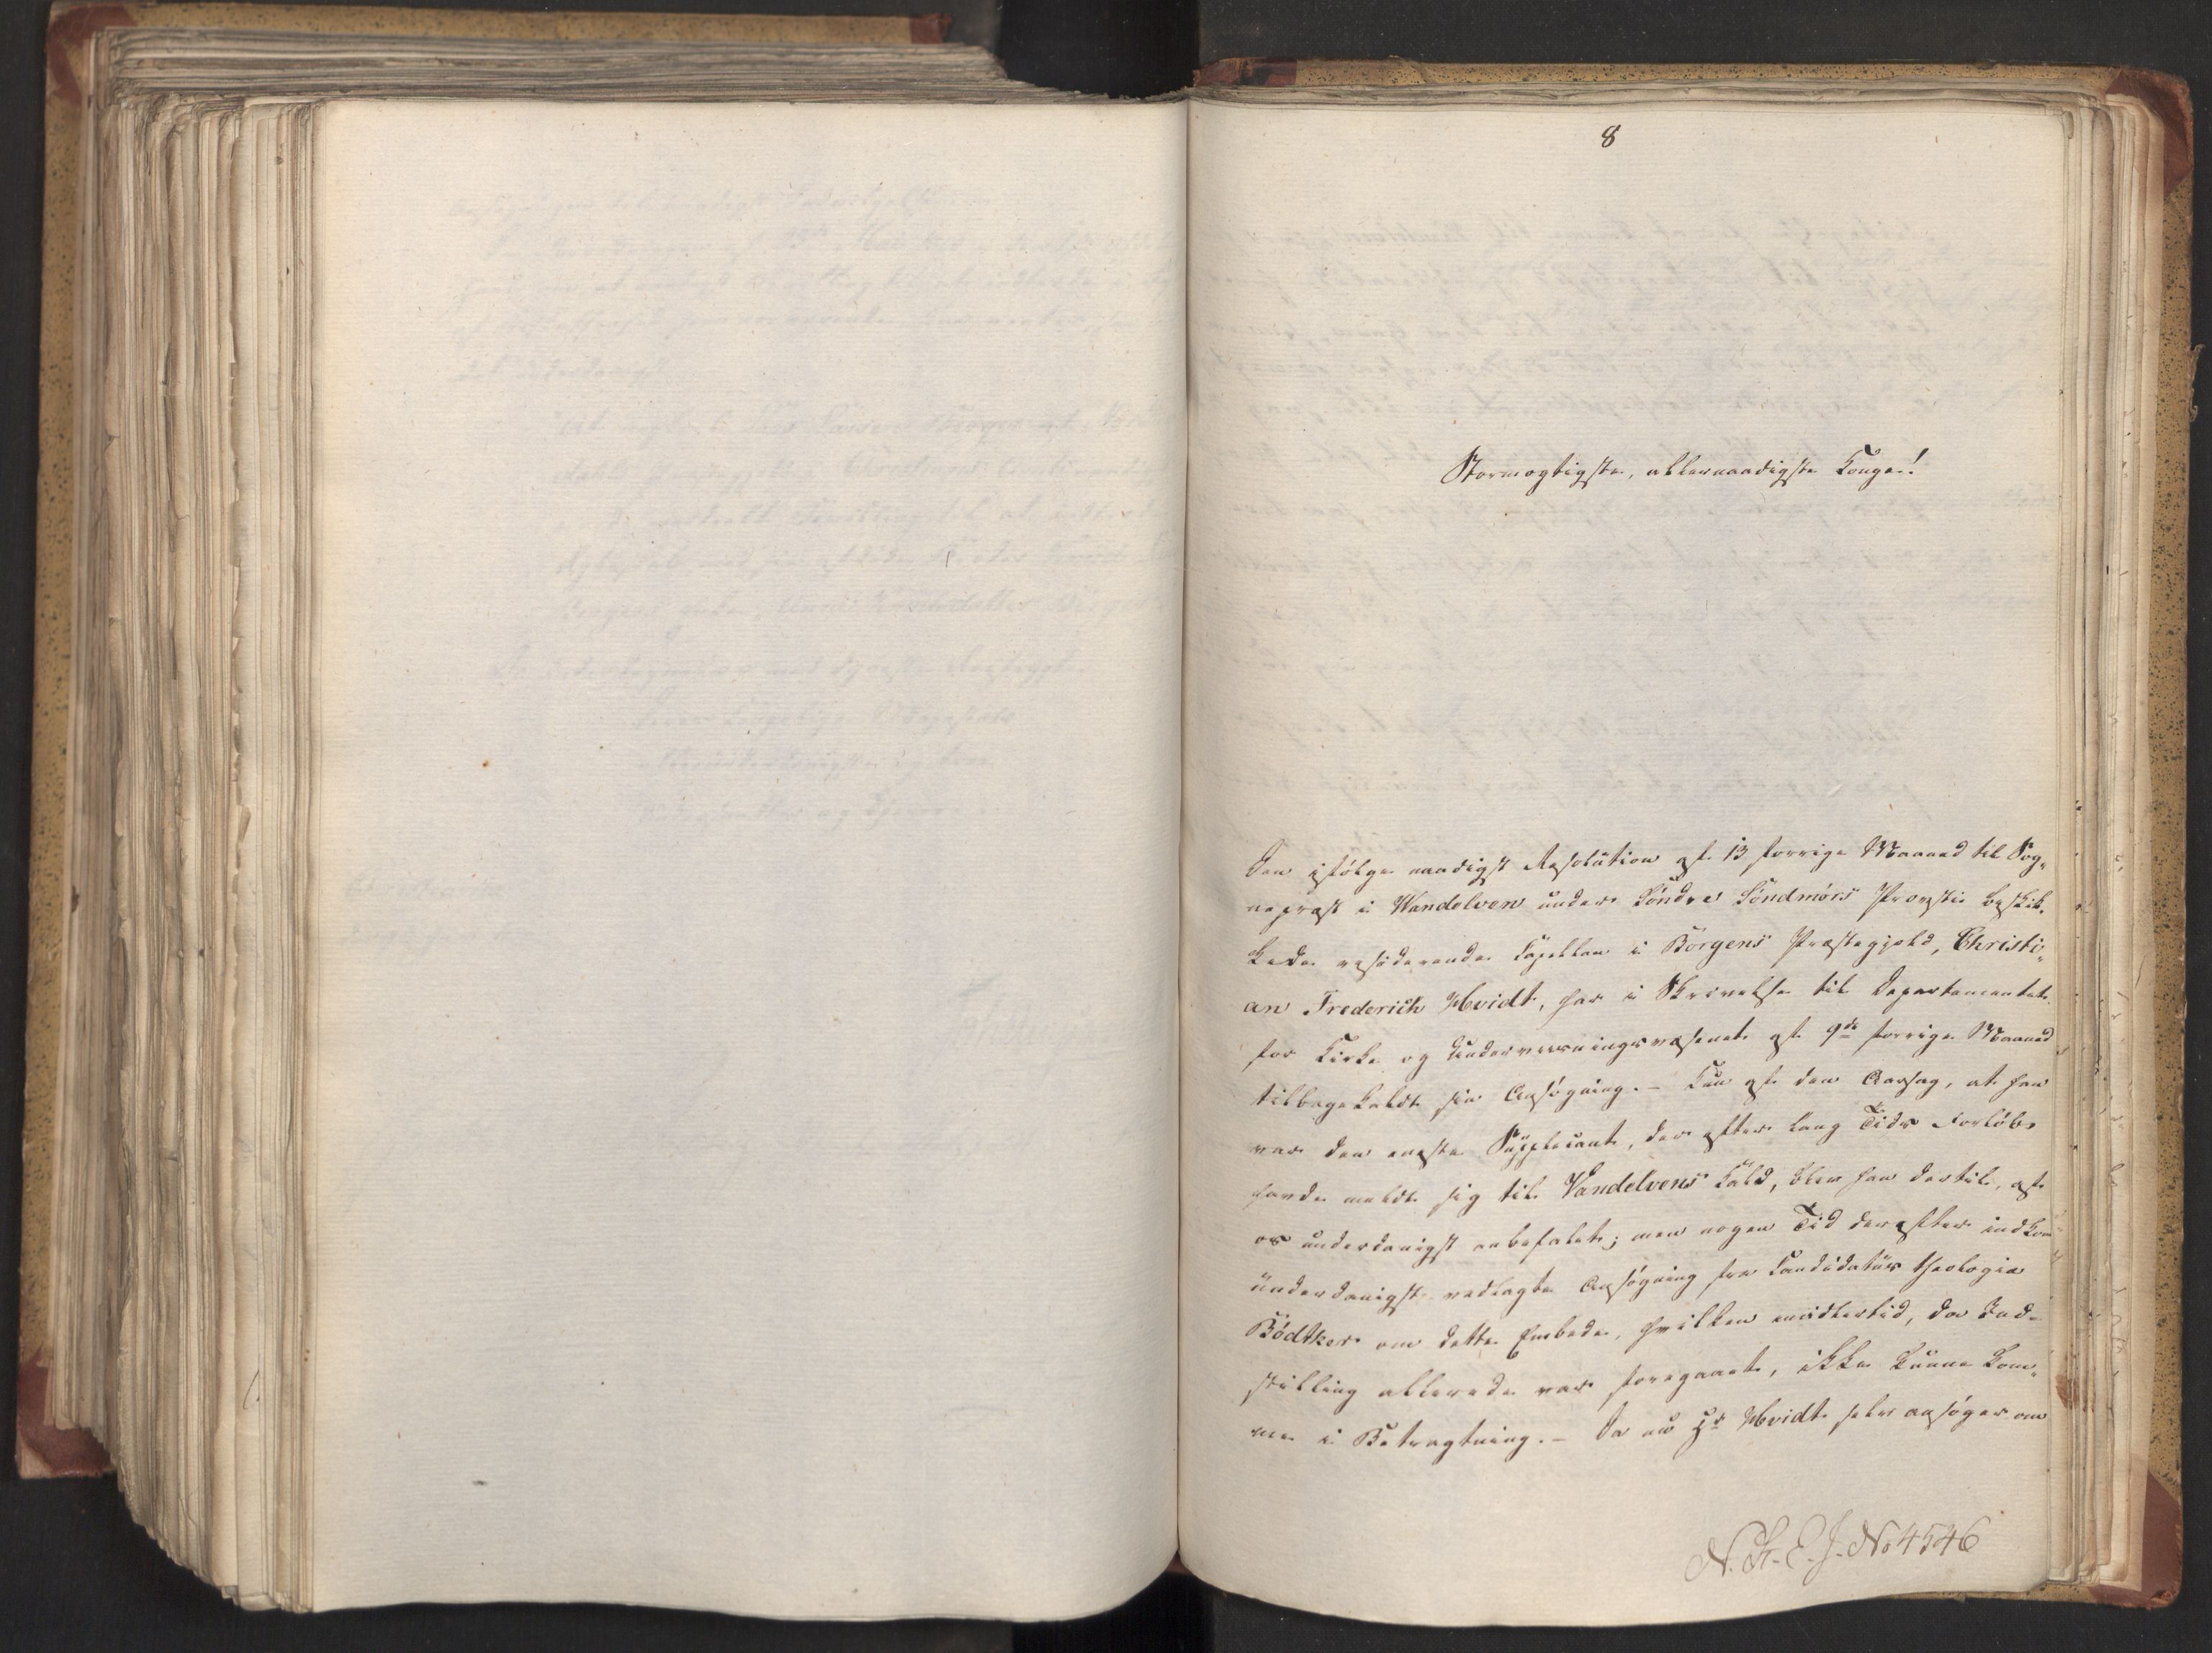 8
Stormægtigste, allernaadigste Konge!
Den ifølge naadigst Resolution af 13 forrige Maaned til Sog-
nepræst i Wandelven under Søndre Söndmörs Provstie beskik-
kede residerende Capellan i Borgens Præstegjeld, Christi-
an Frederich Hvidt, har i Skrivelse til Departementet
for Kirke og Underviisningsvæsenet af 9de forrige Maaned
tilbagekaldt sin Ansögning. – Kun af den Aarsag, at han
var den eneste Supplicant, der efter lang Tids Forløb
havde meldt sig til Vandelvens Kald, blev han dertil, af
os underdanigst anbefalet; men nogen Tid derefter indkom
underdanigst vedlagte Ansøgning fra Candidatus theologiæ
Bödtker om dette Embede, hvilken imidlertid, da Ind-
stilling allerede var foregaaet, ikke kunne kom-
me i Betragtning. – Da nu Hr Hvidt selv ansøger om
N. St. E. J. No 4546